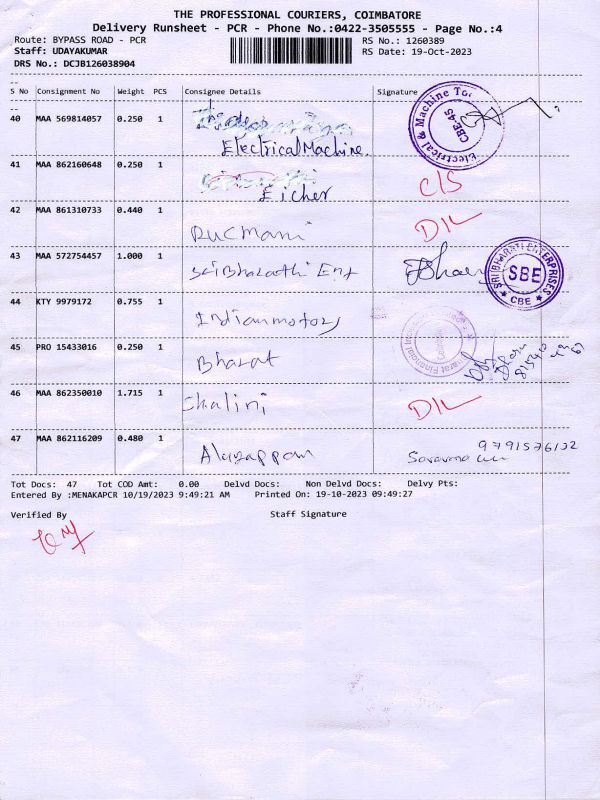 THE PROFESSIONAL COURIERS, COIMBATORE
Delivery Runsheet - PCR - Phone No.:0422-3505555 - Page No.:4
Route: BYPASS ROAD - PCR RS No.: 1260389
Staff: UDAYAKUMAR RS Date: 19-Oct-2023
DRS No.: DCJB126038904
S No Consignment No Weight PCS Consignee Details Signature
40 MAA 569814057 0.250 1
Electrical Machine.
Electrical & Machine Tools CBE-45
41 MAA 862160648 0.250 1
Eicher C/S
42 MAA 861310733 0.440 1
Rucmani D/L
43 MAA 572754457 1.000 1
SriBharathi Ent
SRI BHARATI ENTERPRISES SBE CBE
44 KTY 9979172 0.755 1
Indianmotors
45 PRO 15433016 0.250 1
Bharat
46 MAA 862350010 1.715 1
Shalini D/L
47 MAA 862116209 0.480 1
Alagappan 9791576132
Tot Docs: 47 Tot COD Amt: 0.00 Delvd Docs: Non Delvd Docs: Delvy Pts:
Entered By :MENAKAPCR 10/19/2023 9:49:21 AM Printed On: 19-10-2023 09:49:27
Verified By Staff Signature